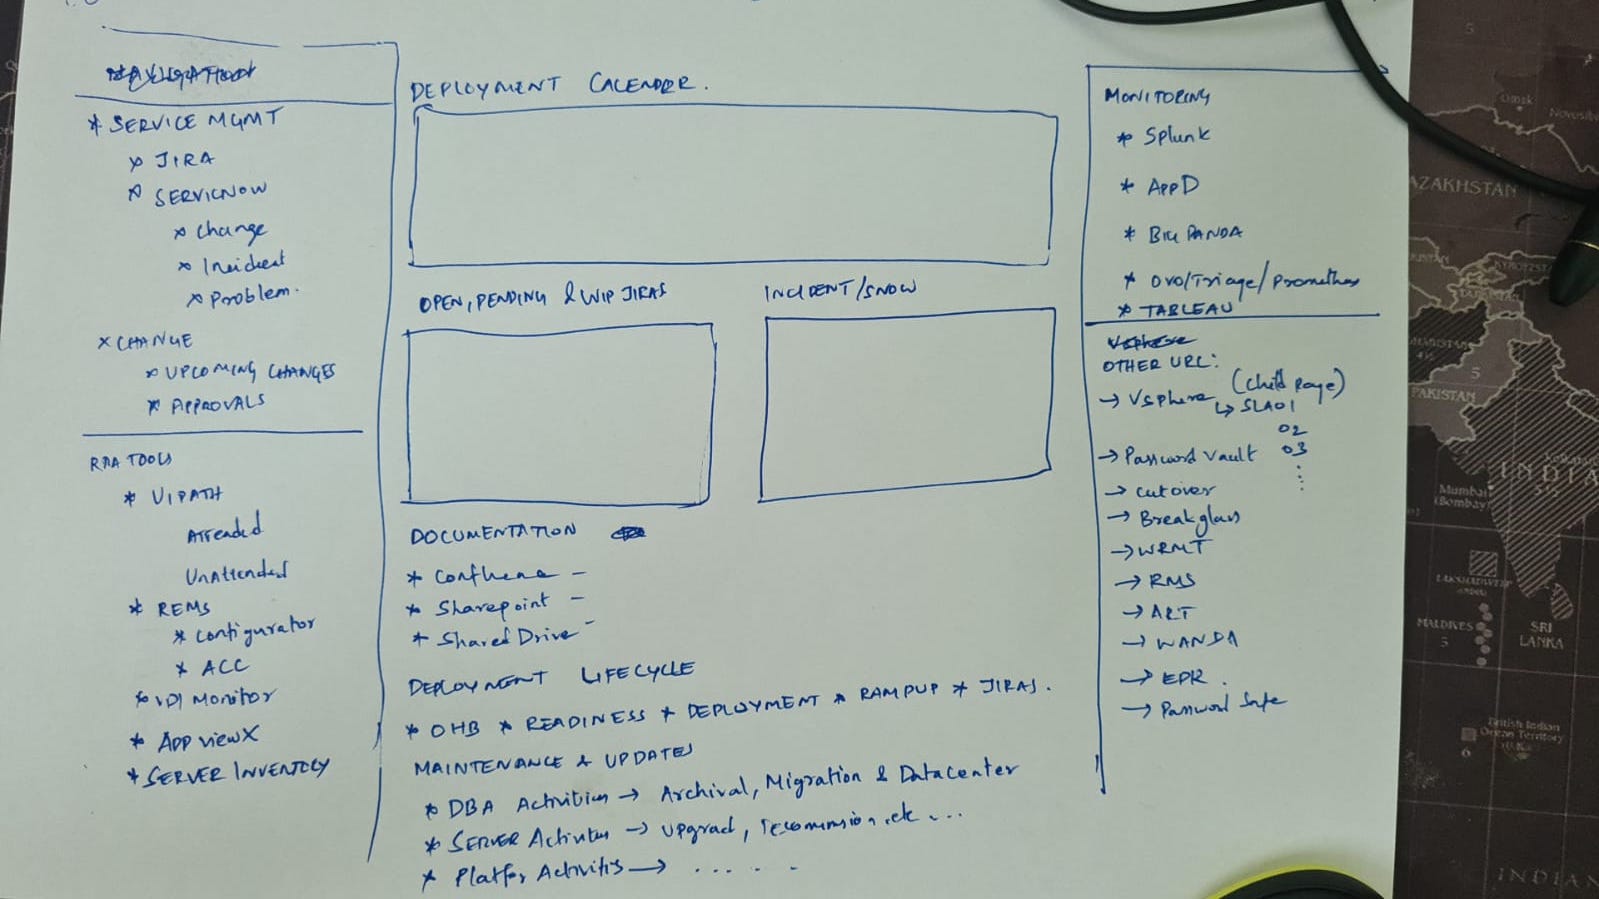 NAVIGATION
* SERVICE MGMT
* JIRA
* SERVICNOW
* Change
* Incident
* Problem.
* CHANGE
* UPCOMING CHANGES
* APPROVALS
RPA TOOLS
* UIPATH
Attended
UnAttended
* REMS
* Configurator
* ACC
* VDI Monitor
* App viewX
* SERVER INVENTORY
DEPLOYMENT CALENDER.
OPEN, PENDING & WIP JIRAS
INCIDENT/SNOW
DOCUMENTATION
* Confluence –
* Sharepoint –
* Shared Drive –
DEPLOYMENT LIFECYCLE
* OHB * READINESS * DEPLOYMENT * RAMPUP * JIRAS.
MAINTENANCE & UPDATES
* DBA Activities → Archival, Migration & Datacenter
* SERVER Activities → upgrad, Decommission, etc ...
* Platfor Activitis → .... . .
MONITORING
* Splunk
* AppD
* BIG PANDA
* OVO/Triage/Promethes
* TABLEAU
Vsphere
OTHER URL:
→ Vsphere (Child Page)
↳ SLA01
02
03
→ Password vault
→ Cutover
→ Breakglass
→ WRMT
→ RMS
→ ART
→ WANDA
→ EPR.
→ Password Safe
AZAKHSTAN
Omsk
PAKISTAN
5
INDIA
Mumbai
(Bombay)
MALDIVES
5
SRI
LANKA
British Indian
Ocean Territory
6
INDIAN